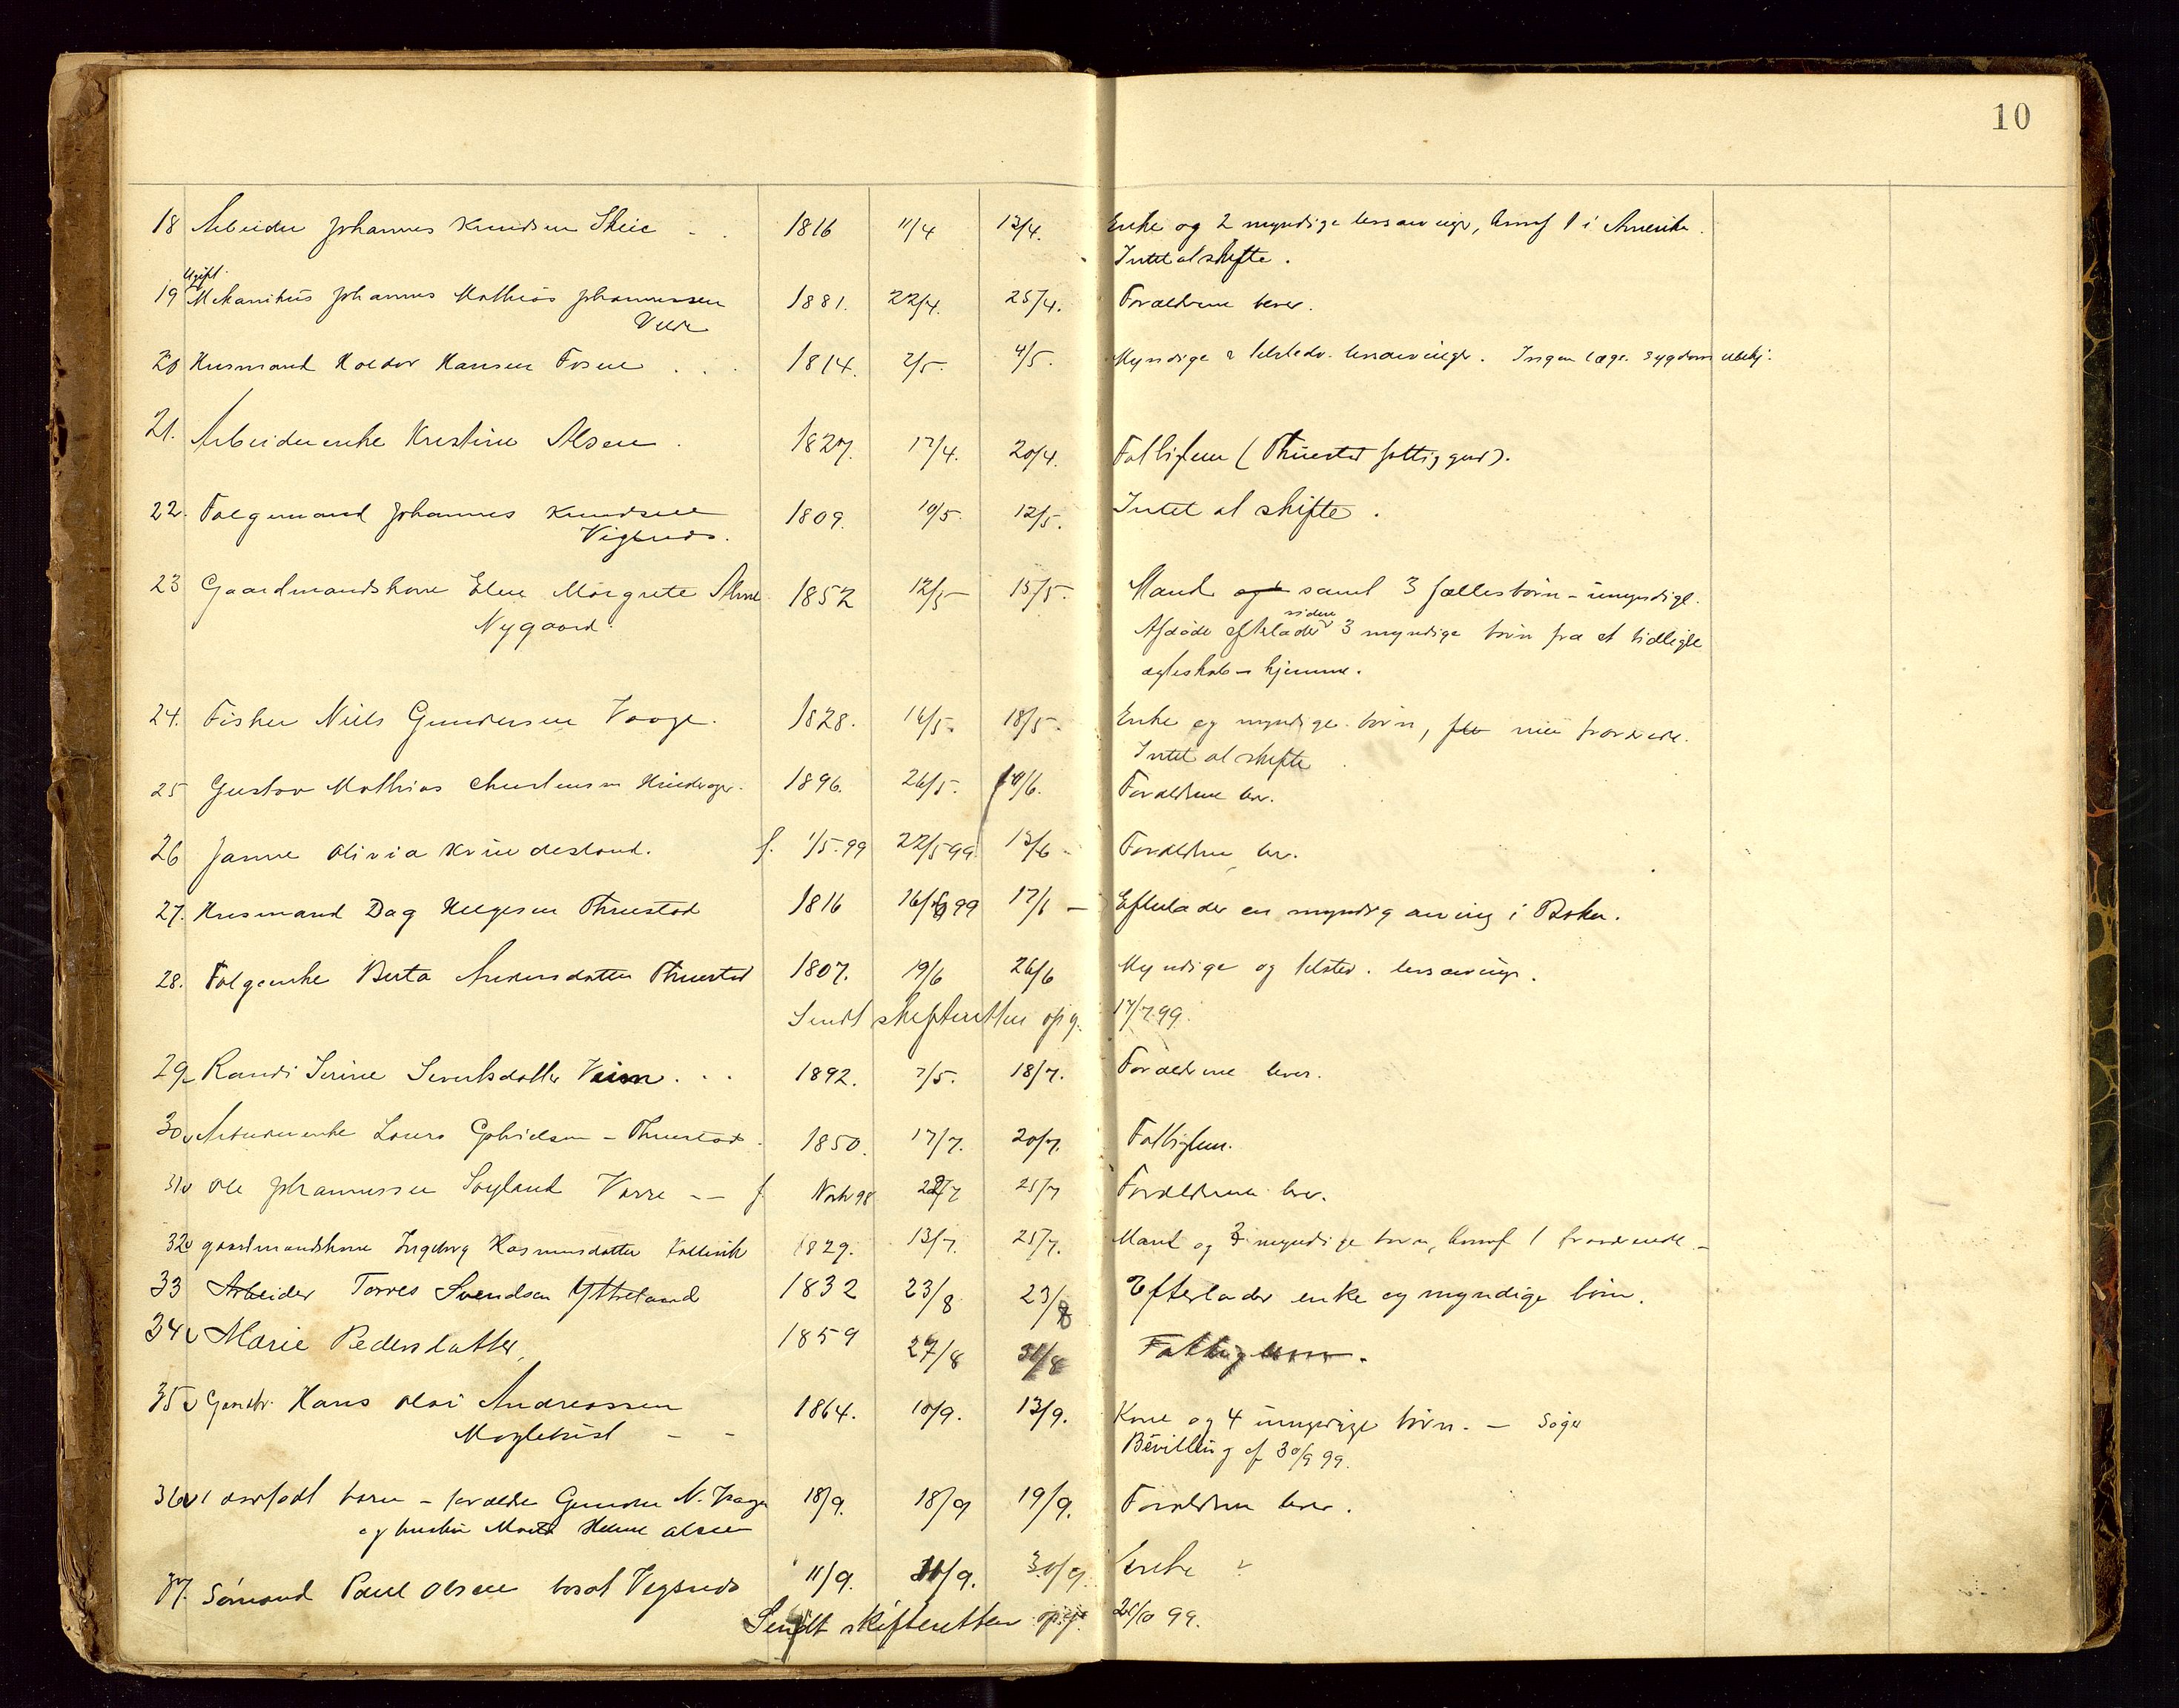 10
18 Arbeider Johannes Knudsen Skeie - . 1816 11/4 13/4. Enke og 2 myndige livsarvinger, hvoraf 1 i Amerika.
Intet at skifte.
Ugift
19 Mekanikus Johannes Mathias Johannessen 1881. 22/4. 25/4. Forældrene lever.
20 Husmand Haldor Hansen Fosne . . . 1814. 2/5. 4/5. Myndige & tilstedev. livsarvinger. Ingen læge. Sygdom ubekj.
21. Arbeiderenke Kristine Olsen . 1827. 17/4. 20/4. Fattiglem (Thuestad fattiggaard).
22. Følgemand Johannes Knudsen 1809. 10/5. 12/5. Intet at skifte.
Vigsnæs.
23 Gaardmandskone Elene Margrete 1852 12/5 15/5. Mand og samt 3 fællesbørn - umyndige.
Nygaard. Afdøde efterlader siden 3 myndige børn fra et tidligere
ægteskab - hjemme.
24. Fisker Niels Gundersen Vaage. 1828. 14/5. 18/5. Enke og myndige børn, fraværende.
Intet at skifte
25 Gustav Mathias Christensen 1896. 26/5. 10/6. Forældrene lev.
26 Janne Olivia Kvindesland. f. 1/5.99 22/5 99 13/6 - Forældrene lev.
27. Husmand Dag Helgesen Thuestad 1816 99 17/6 - Efterlader en myndig arving i Boken.
28. Følgeenke Berta Andersdatter Thuestad 1807. 19/6 26/6 Myndige og tilsted. livsarvinger.
Sendt skifteretten opg. 17/7.99.
29 Randi Serine Sivertsdatter . . . 1892. 7/5. 18/7. Forældrene lever.
30 Arbeiderenke Lovise Gabrielsen - Thuestad. 1850. 17/7. 20/7. Fattiglem.
31 Ole Johannessen Søyland Varre - - f Novbr 98 22/7 25/7 Forældrene lev.
32 gaardmandskone Ingeborg Rasmusdatter Kallevik 1829. 13/7. 25/7. Mand og 3 myndige børn, hvoraf 1 fraværende. -
33 Arbeider Torres Svendsen Yttreland 1832 23/8 23/8 Efterlader enke og myndige børn.
34 Marie Pedersdatter, 1859 27/8 31/8 Fattiglem.
35 Gaardbr. Hans Olai Andreassen 1864. 10/9. 13/9. Kone og 4 umyndige børn. - Søger
Bevilling af 30/9 99.
36 1 dødfødt barn - forældre Gunder N. Vaage 18/9. 18/9 19/9. Forældrene lever.
og hustru Marta Helene Olsen
37. Sømand Paul Olsen bosat Vigsnæs 11/9. 11/9. 30/9. Enke
Sendt skifteretten opg. 25/10 99.